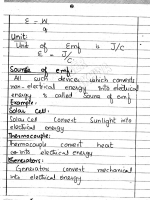 E = W
q
Unit:
Unit of Emf is J/C
E = J/C
Source of emf:
All such devices which converts
non-electrical energy into electrical
energy is called source of emf.
Example:
Solar Cell:
Solar Cell Convert Sunlight into
electrical energy
Thermocouple:
Thermocouple convert heat
into electrical energy
Generators:
Generators convert mechanical
into electrical energy